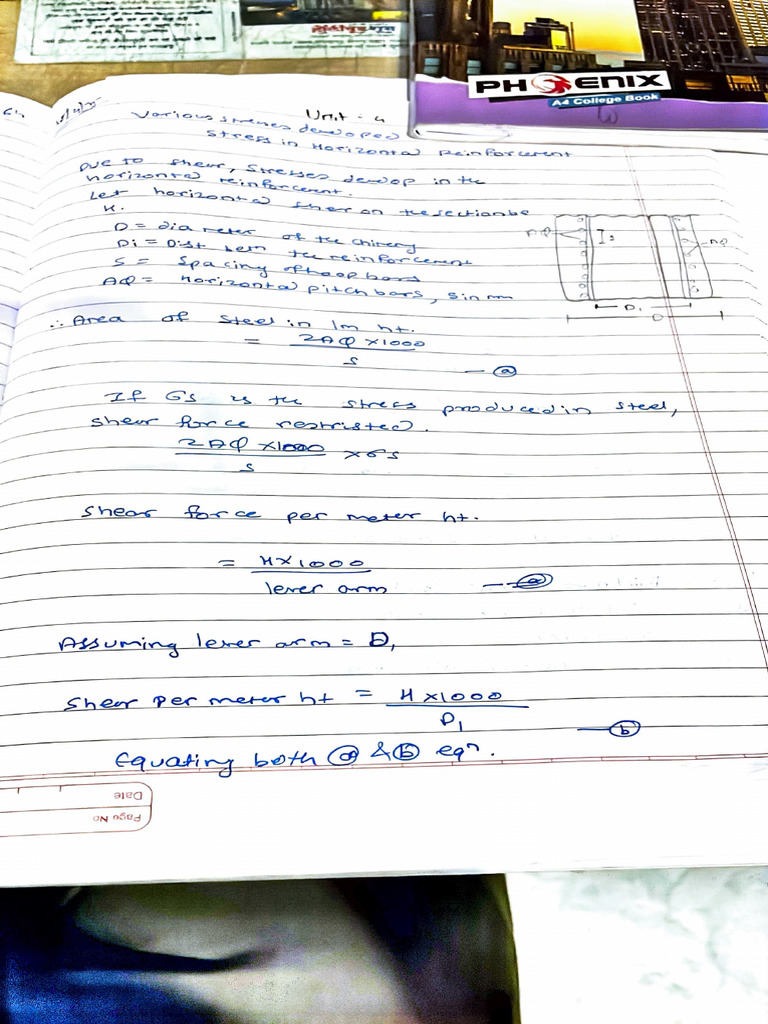 PHOENIX
A4 College Book
Unit : 4
Various stresses developed
Stress in Horizontal Reinforcement
Due to shear, stresses develop in the
horizontal reinforcement.
Let horizontal shear on the section be
H.
D = diameter of the chimney
Di = Dist betn the reinforcement
S = Spacing of hoop bars
AΦ = Horizontal pitch bars, s in mm
AΦ
S
AΦ
D1
D
∴ Area of Steel in 1m ht.
= 2AΦ x1000 / s
— ⓐ
If σs is the stress produced in steel,
shear force restristed.
2AΦ x1000 / s xσs
Shear force per meter ht.
= Hx1000 / lever arm
— ⓐ
Assuming lever arm = D1
Shear per meter ht = H x1000 / D1
— ⓑ
Equating both ⓐ & ⓑ eqn.
Date
Page No